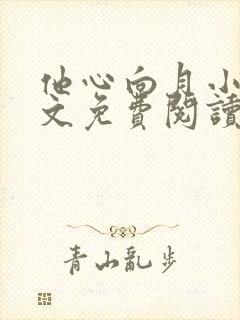 他心向月小
文免費閱讀
青山亂步